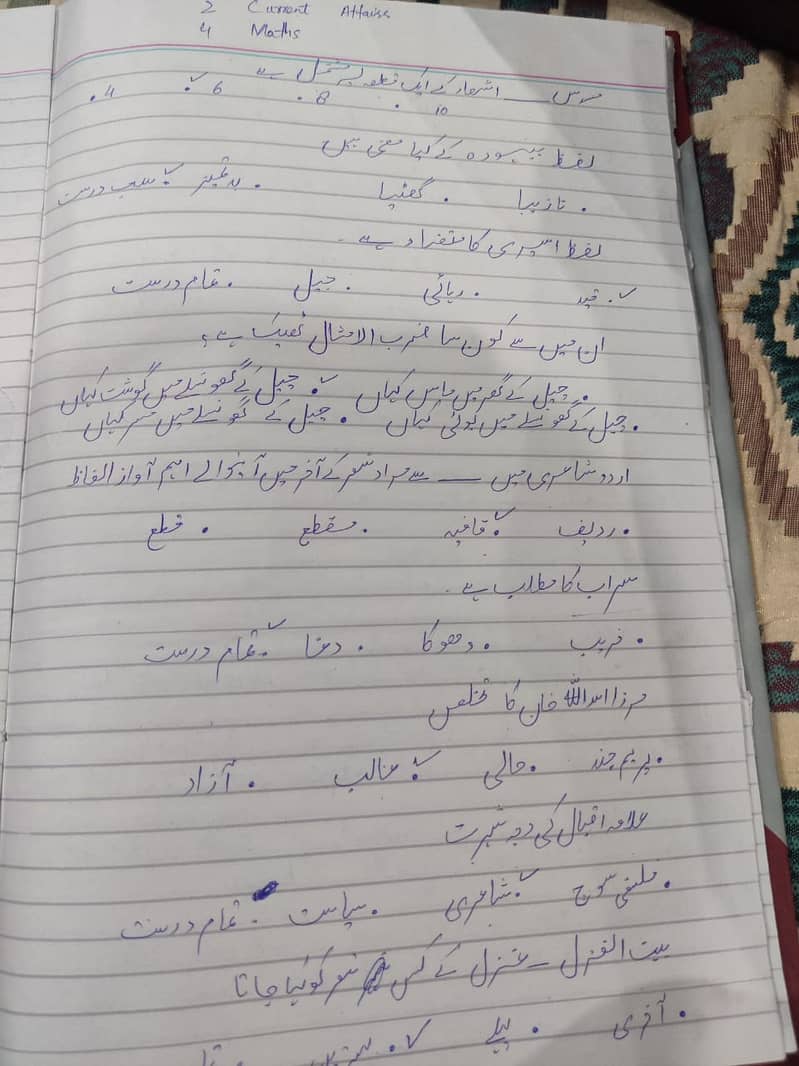 2 Current Affairs
4 Maths
مسدس ـــــ اشعار کے ایک قطعہ پر مشتمل ہے
.4 ✓. 6 . 8 . 10
لفظ بیہودہ کے کیا معنی ہیں
. نازیبا . گھٹیا . بدتمیز ✓. سب درست
لفظ اسیری کا متضاد ہے۔
✓. قید . ریائی . جیل . تمام درست
ان میں سے کون سا ضرب الامثال ٹھیک ہے؟
. چیل کے گھر میں ماس کہاں ✓. چیل کے گھونسلے میں گوشت کہاں
. چیل کے گھونسلے میں بوٹی کہاں . چیل کے گھونسلے میں کہاں
اردو شاعری میں ـــــ سے مراد شعر کے آخر میں آنیوالے اہم آواز الفاظ
. ردیف ✓. قافیہ . مقطع . قطع
سراب کا مطلب ہے۔
. فریب . دھوکا . دغا ✓. تمام درست
مرزا اسد اللہ خان کا تخلص
. پریم چند . حالی ✓. غالب . آزاد
علامہ اقبال کی وجہ شہرت
. فلسفی سوچ ✓. شاعری . سیاست . تمام درست
بیت الغزل ــ غزل کے کس شعر کو کہا جاتا
. آخری . پہلے ✓.